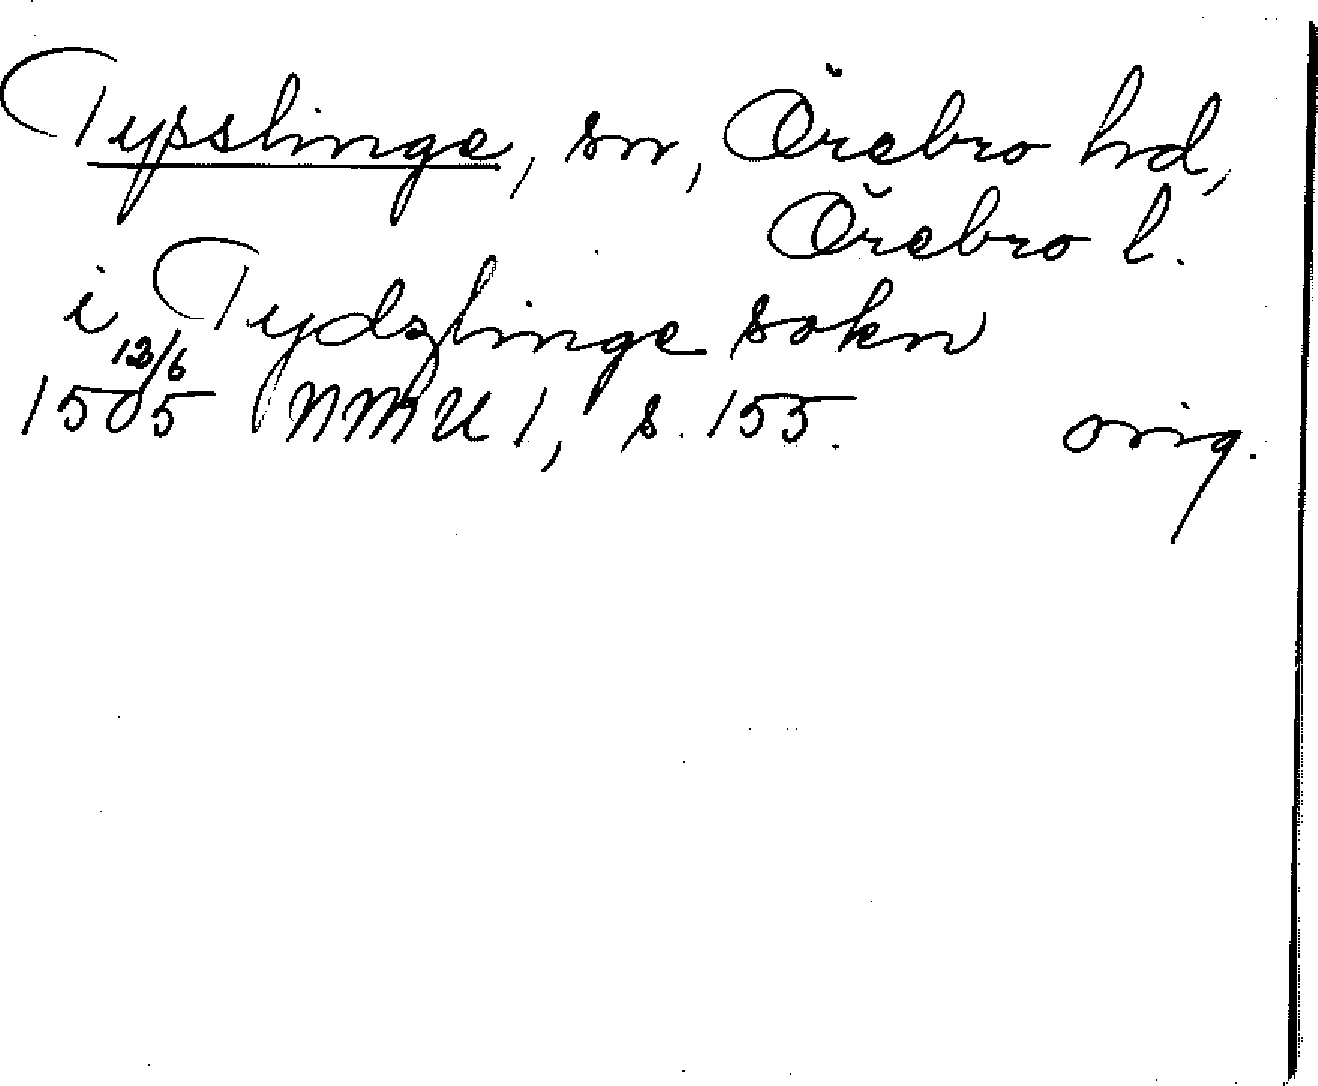 Tysslinge, sn, Örebro hd,
Örebro l.
i Tydzlinge sokn
13/6
1505 NMU 1, s. 155. orig.